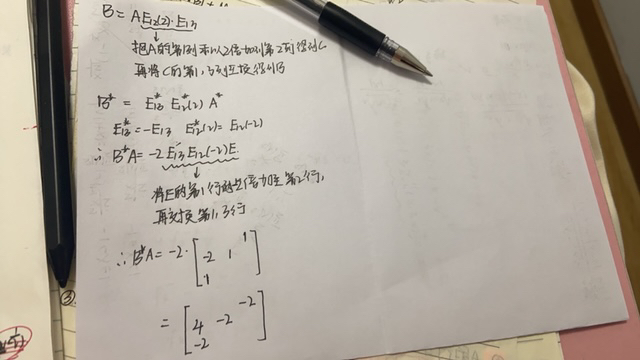 B = AE₁₂(2)·E₁₃
把A的第1列乘以2倍加到第2列得到C
再将C的第1,3列互换得到B
B* = E₁₃* E₁₂*(2) A*
E₁₃* = -E₁₃ E₁₂*(2) = E₁₂(-2)
∴ B*A = -2 E₁₃ E₁₂(-2) E.
将E的第1行的-2倍加至第2行,
再交换第1,3行
∴ B*A = -2·[ 1
-2 1
1 ]
= [ -2
4 -2
-2 ]
③